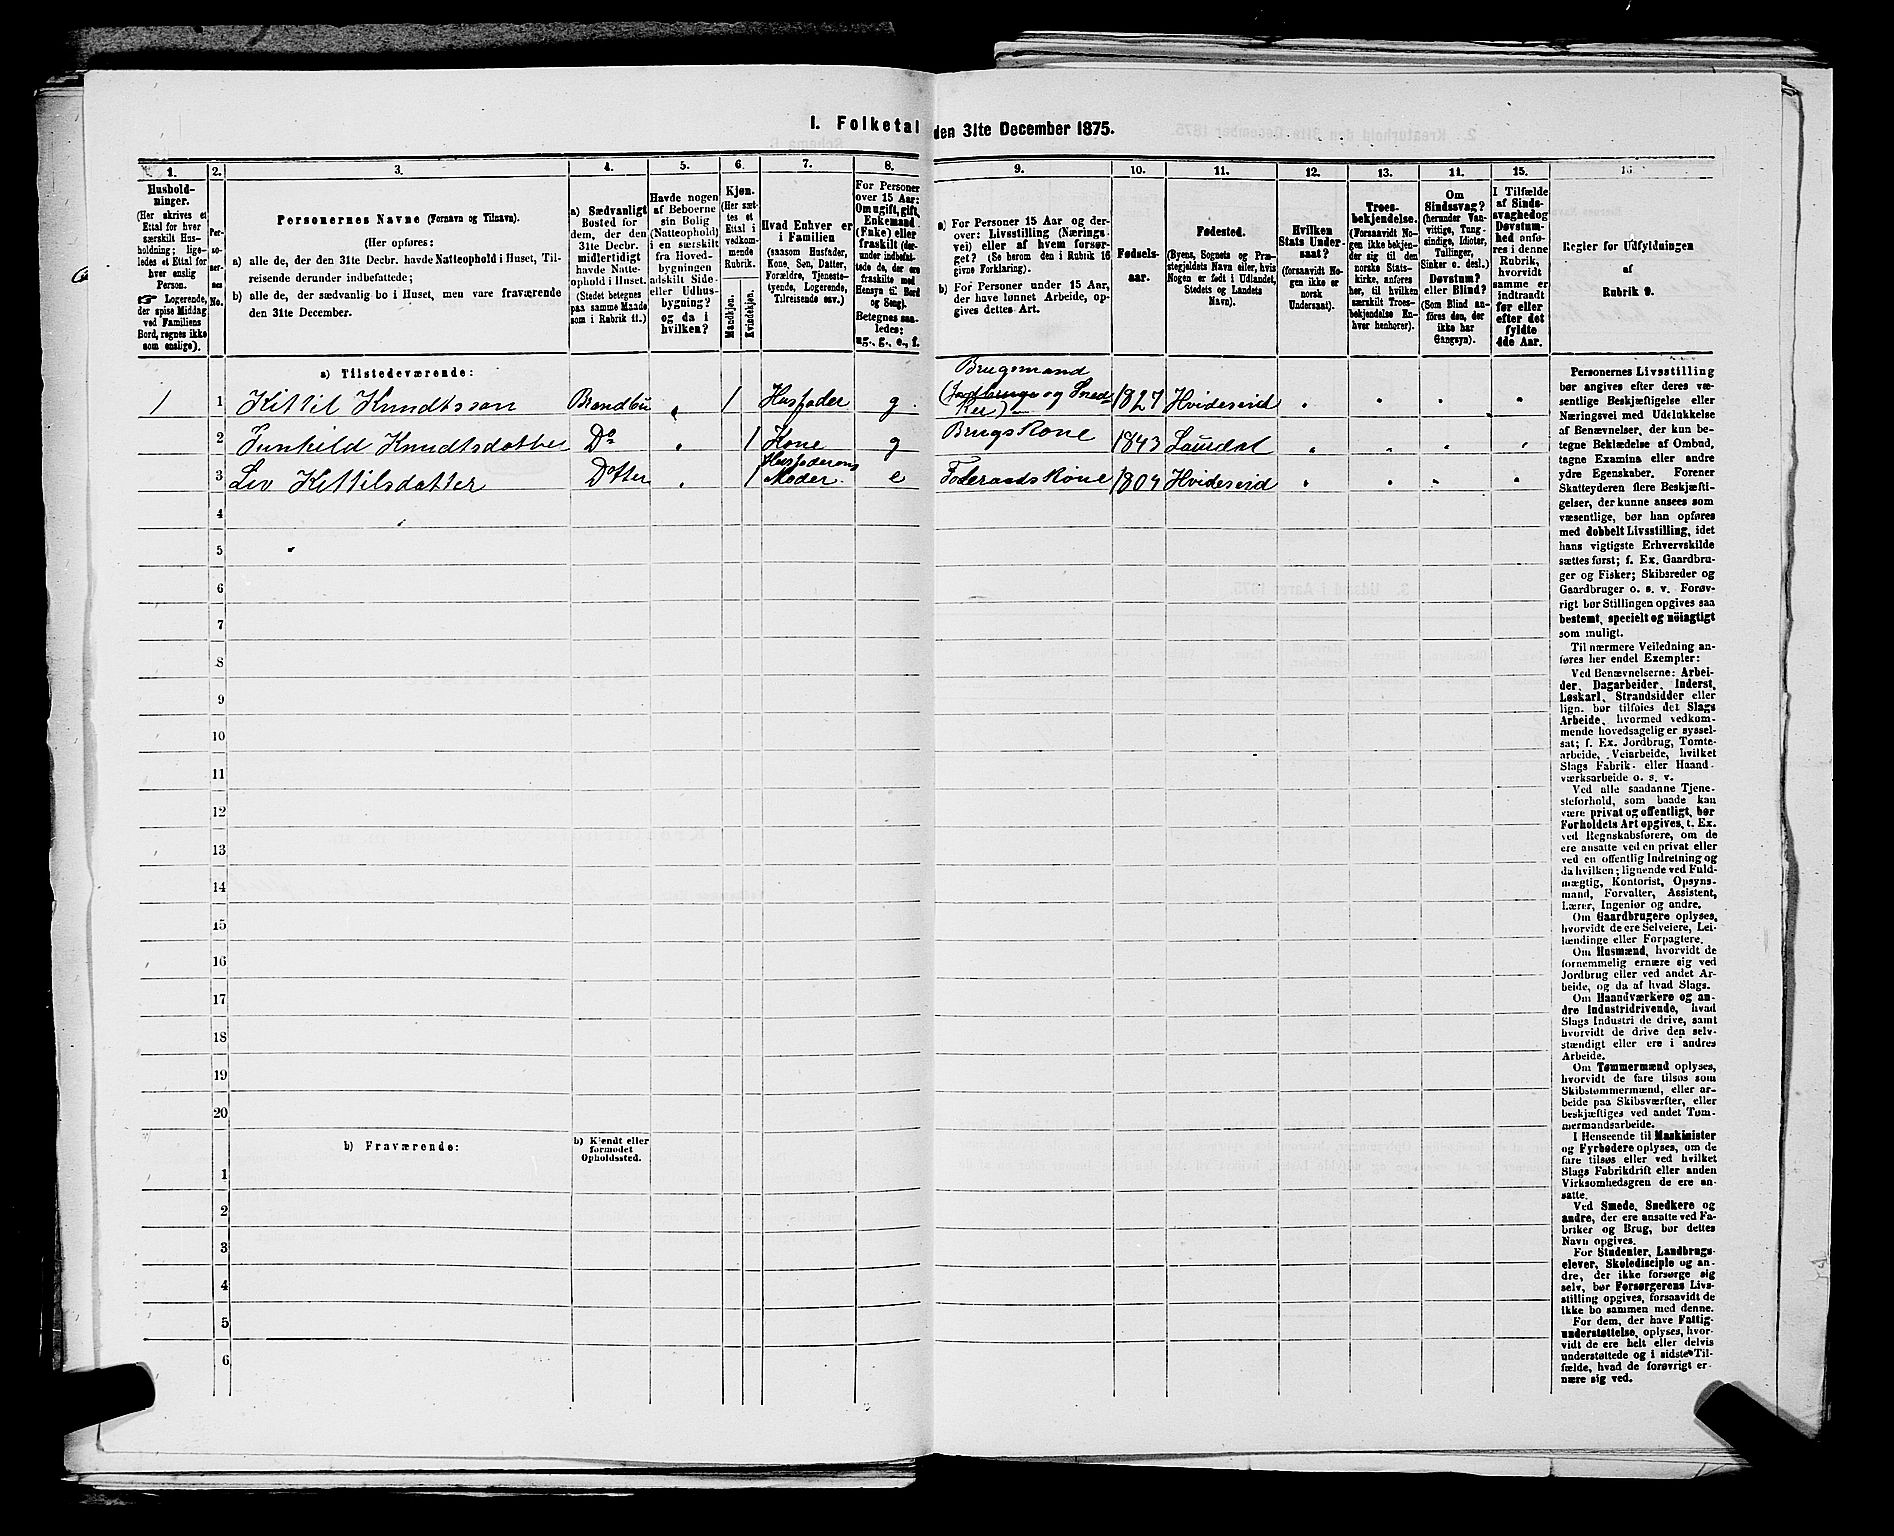 I. Folketal den 31te December 1875.
1. 2. 3. 4. 5. 6. 7. 8. 9. 10. 11. 12. 13. 14. 15. 16
Husholdninger.
(Her skrives et
Ettal for hver
særskilt Husholdning;
ligeledes et Ettal for
hver enslig
Person.
☞ Logerende,
der spise Middag
ved Familiens
Bord, regnes ikke
som enslige).
Personernes No.
Personernes Navne (Fornavn og Tilnavn).
(Her opføres:
a) alle de, der den 31te Decbr. havde Natteophold i Huset, Tilreisende derunder indbefattede;
b) alle de, der sædvanlig bo i Huset, men vare fraværende
den 31te December.
a) Sædvanligt
Bosted for
dem, der den
31te Decbr.
midlertidigt
havde Natteophold i Huset.
(Stedet betegnes
paa samme Maade
som i Rubrik 11.)
Havde nogen
af Beboerne
sin Bolig
(Natteophold)
i en særskilt
fra Hovedbygningen
adskilt Side- eller Udhusbygning?
og da i
hvilken?
Kjøn.
(Her sættes et
Ettal i
vedkommende
Rubrik.
Mandkjøn.
Kvindekjøn.
Hvad Enhver er
i Familien
(saasom Husfader,
Kone, Søn, Datter,
Forældre, Tjenestetyende, Logerende,
Tilreisende osv.)
For Personer
over 15 Aar:
Om ugift, gift,
Enkemand
(Enke) eller
fraskilt (derunder indbefattede de, der ere
fraskilte med
Hensyn til Bord
og Seng).
Betegnes saaledes:
ug., g., e., f.
a) For Personer 15 Aar og derover: Livsstilling (Næringsvei) eller af hvem forsørget? (Se herom den i Rubrik 16
givne Forklaring).
b) For Personer under 15 Aar,
der have lønnet Arbeide, opgives dettes Art.
Fødselsaar.
Fødested.
(Byens, Sognets og Præstegjeldets Navn eller, hvis
Nogen er født i Udlandet,
Stedets og Landets
Navn).
Hvilken
Stats Undersaat?
(forsaavidt Nogen ikke er
norsk
Undersaat).
Troesbekjendelse.
(Forsaavidt Nogen ikke bekjender sig til den
norske Statskirke, anføres
her, til hvilken
særskilt Troesbekjendelse Enhver henhører).
Om
Sindssvag?
(herunder Vanvittige, Tungsindige, Idioter,
Tullinger,
Sinker o. desl.)
Døvstum?
eller Blind?
(Som Blind anføres den, der
ikke har
Gangsyn).
I Tilfælde
af Sindssvaghed og
Døvstumhed anføres i denne
Rubrik,
hvorvidt
samme er
indtraadt
før eller
efter det
fyldte
4de Aar.
Regler for Udfyldningen
af
Rubrik 9.
a) Tilstedeværende:
1 1 Kittil Knudtssøn Brandbu 1 Husfader g Brugsmand (Jordbruger og Snedker) 1827 Hvideseid
2 Gunhild Knudtsdatter Do 1 Kone g Brugskone 1843 Laurdal
3 Liv Kittilsdatter Dotter 1 Husfaderens Moder e Føderaadskone 1804 Hvideseid
4
5
6
7
8
9
10
11
12
13
14
15
16
17
18
19
20
b) Fraværende:
b) Kjendt eller
formodet
Opholdssted.
1
2
3
4
5
6
Personernes Livsstilling
bør angives efter deres væsentlige Beskjæftigelse eller
Næringsvei med Udelukkelse
af Benævnelser, der kun betegne Beklædelse af Ombud,
tagne Examina eller andre
ydre Egenskaber. Forener
Skatteyderen flere Beskjæftigelser, der kunne ansees som
væsentlige, bør han opføres
med dobbelt Livsstilling, idet
hans vigtigste Erhvervskilde
sættes først; f. Ex. Gaardbruger og Fisker; Skibsreder og
Gaardbruger o. s. v. Forøvrigt bør Stillingen opgives saa
bestemt, specielt og nöiagtigt
som muligt.
Til nærmere Veiledning anføres her endel Exempler:
Ved Benævnelserne: Arbeider, Dagarbeider, Inderst,
Løskarl, Strandsidder eller
lign. bør tilføies det Slags
Arbeide, hvormed vedkommende hovedsagelig er sysselsat; f. Ex. Jordbrug, Tomtearbeide, Veiarbeide, hvilket
Slags Fabrik- eller Haandværksarbeide o. s. v.
Ved alle saadanne Tjenesteforhold, som baade kan
være privat og offentligt, bør
Forholdets Art opgives, t. Ex.
ved Regnskabsførere, om de
ere ansatte ved en privat eller
ved en offentlig Indretning og
da hvilken; lignende ved Fuldmægtig, Kontorist, Opsynsmand, Forvalter, Assistent,
Lærer, Ingeniør og andre.
Om Gaardbrugere oplyses,
hvorvidt de ere Selveiere, Leilændinge eller Forpagtere.
Om Husmænd, hvorvidt de
fornemmelig ernære sig ved
Jordbrug eller ved andet Arbeide, og da af hvad Slags.
Om Haandværkere og andre Industridrivende, hvad
Slags Industri de drive, samt
hvorvidt de drive den selvstændigt eller ere i andres
Arbeide.
Om Tømmermænd oplyses,
hvorvidt de fare tilsøs som
Skibstømmermænd, eller arbeide paa Skibsværfter, eller
beskjæftiges ved andet Tømmermandsarbeide.
I Henseende til Maskinister
og Fyrbødere oplyses, om de
fare tilsøs eller ved hvilket
Slags Fabrikdrift eller anden
Virksomhedsgren de ere ansatte.
Ved Smede, Snedkere og
andre, der ere ansatte ved Fabriker og Brug, bør dettes
Navn opgives.
For Studenter, Landbrugselever, Skoledisciple og andre, der ikke forsørge sig
selv, bør Forsørgerens Livsstilling opgives, forsaavidt de
ikke bo sammen med denne.
For dem, der have Fattigunderstøttelse, oplyses, hvorvidt de ere helt eller delvis
understøttede og i sidste Tilfælde, hvad de forøvrigt ernære sig ved.